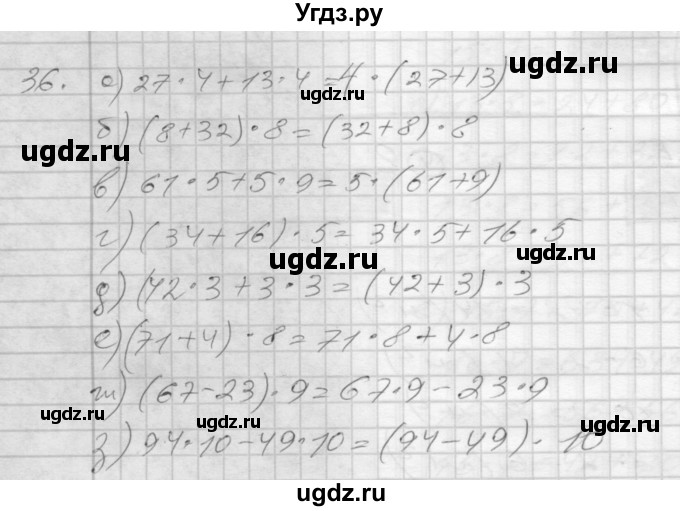 Угдз.ру
36. а) 27·4+13·4=4·(27+13)
ugdz.ru
ugdz.ru
б) (8+32)·8=(32+8)·8
ugdz.ru
ugdz.ru
в) 61·5+5·9=5·(61+9)
г) (34+16)·5=34·5+16·5
ugdz.ru
ugdz.ru
д) (42·3+3·3=(42+3)·3
е) (71+4)·8=71·8+4·8
ж) (67-23)·9=67·9-23·9
ugdz.ru
ugdz.ru
з) 94·10-49·10=(94-49)·10
ugdz.ru
ugdz.ru